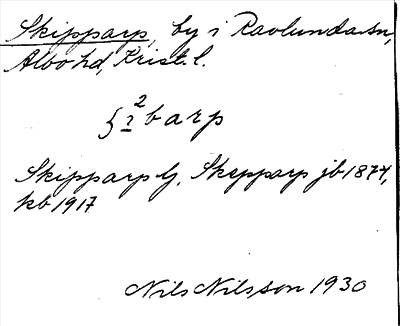 Skipparp, by i Ravlunda sn,
Albo hd, Krist. l.
Skipparp G, Skepparp jb 1874,
kb 1917
Nils Nilsson 1930